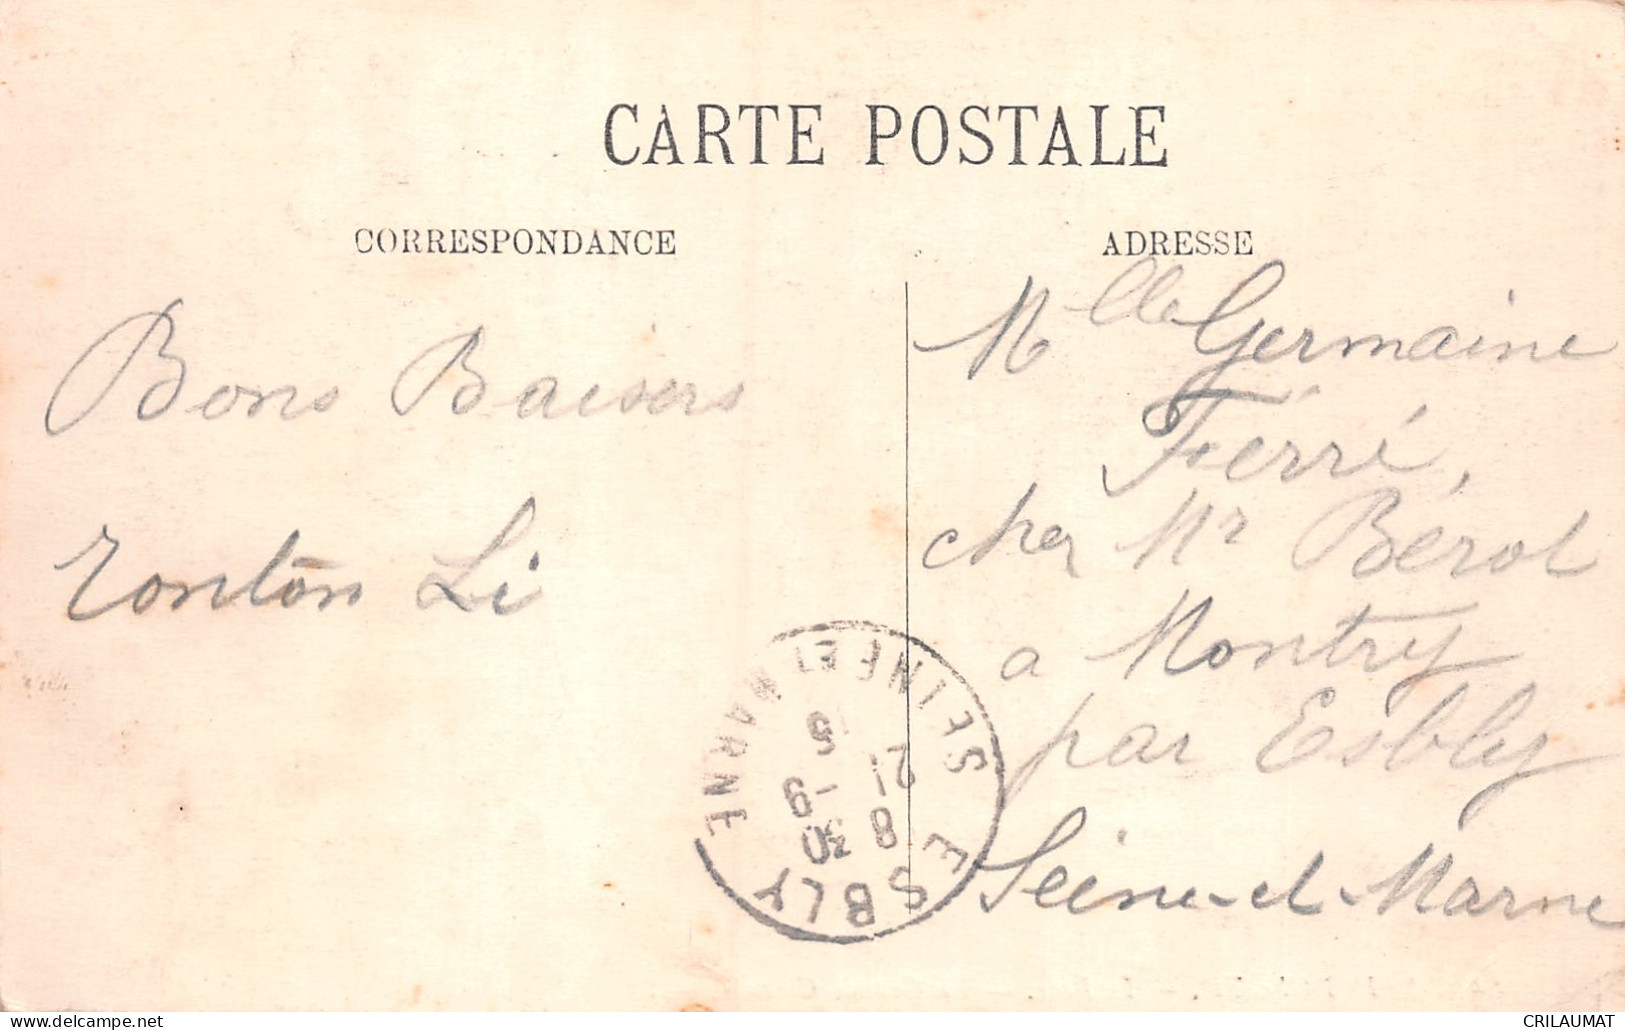 CARTE POSTALE
CORRESPONDANCE
Bons Baisers
Tonton Li
ADRESSE
Mlle Germaine
Ferré,
chez Mr Bérol
a Montry
par Esbly
Seine-et-Marne
ESBLY
SEINE ET MARNE
8 30
21 -9
5
delcampe.net
CRILAUMAT